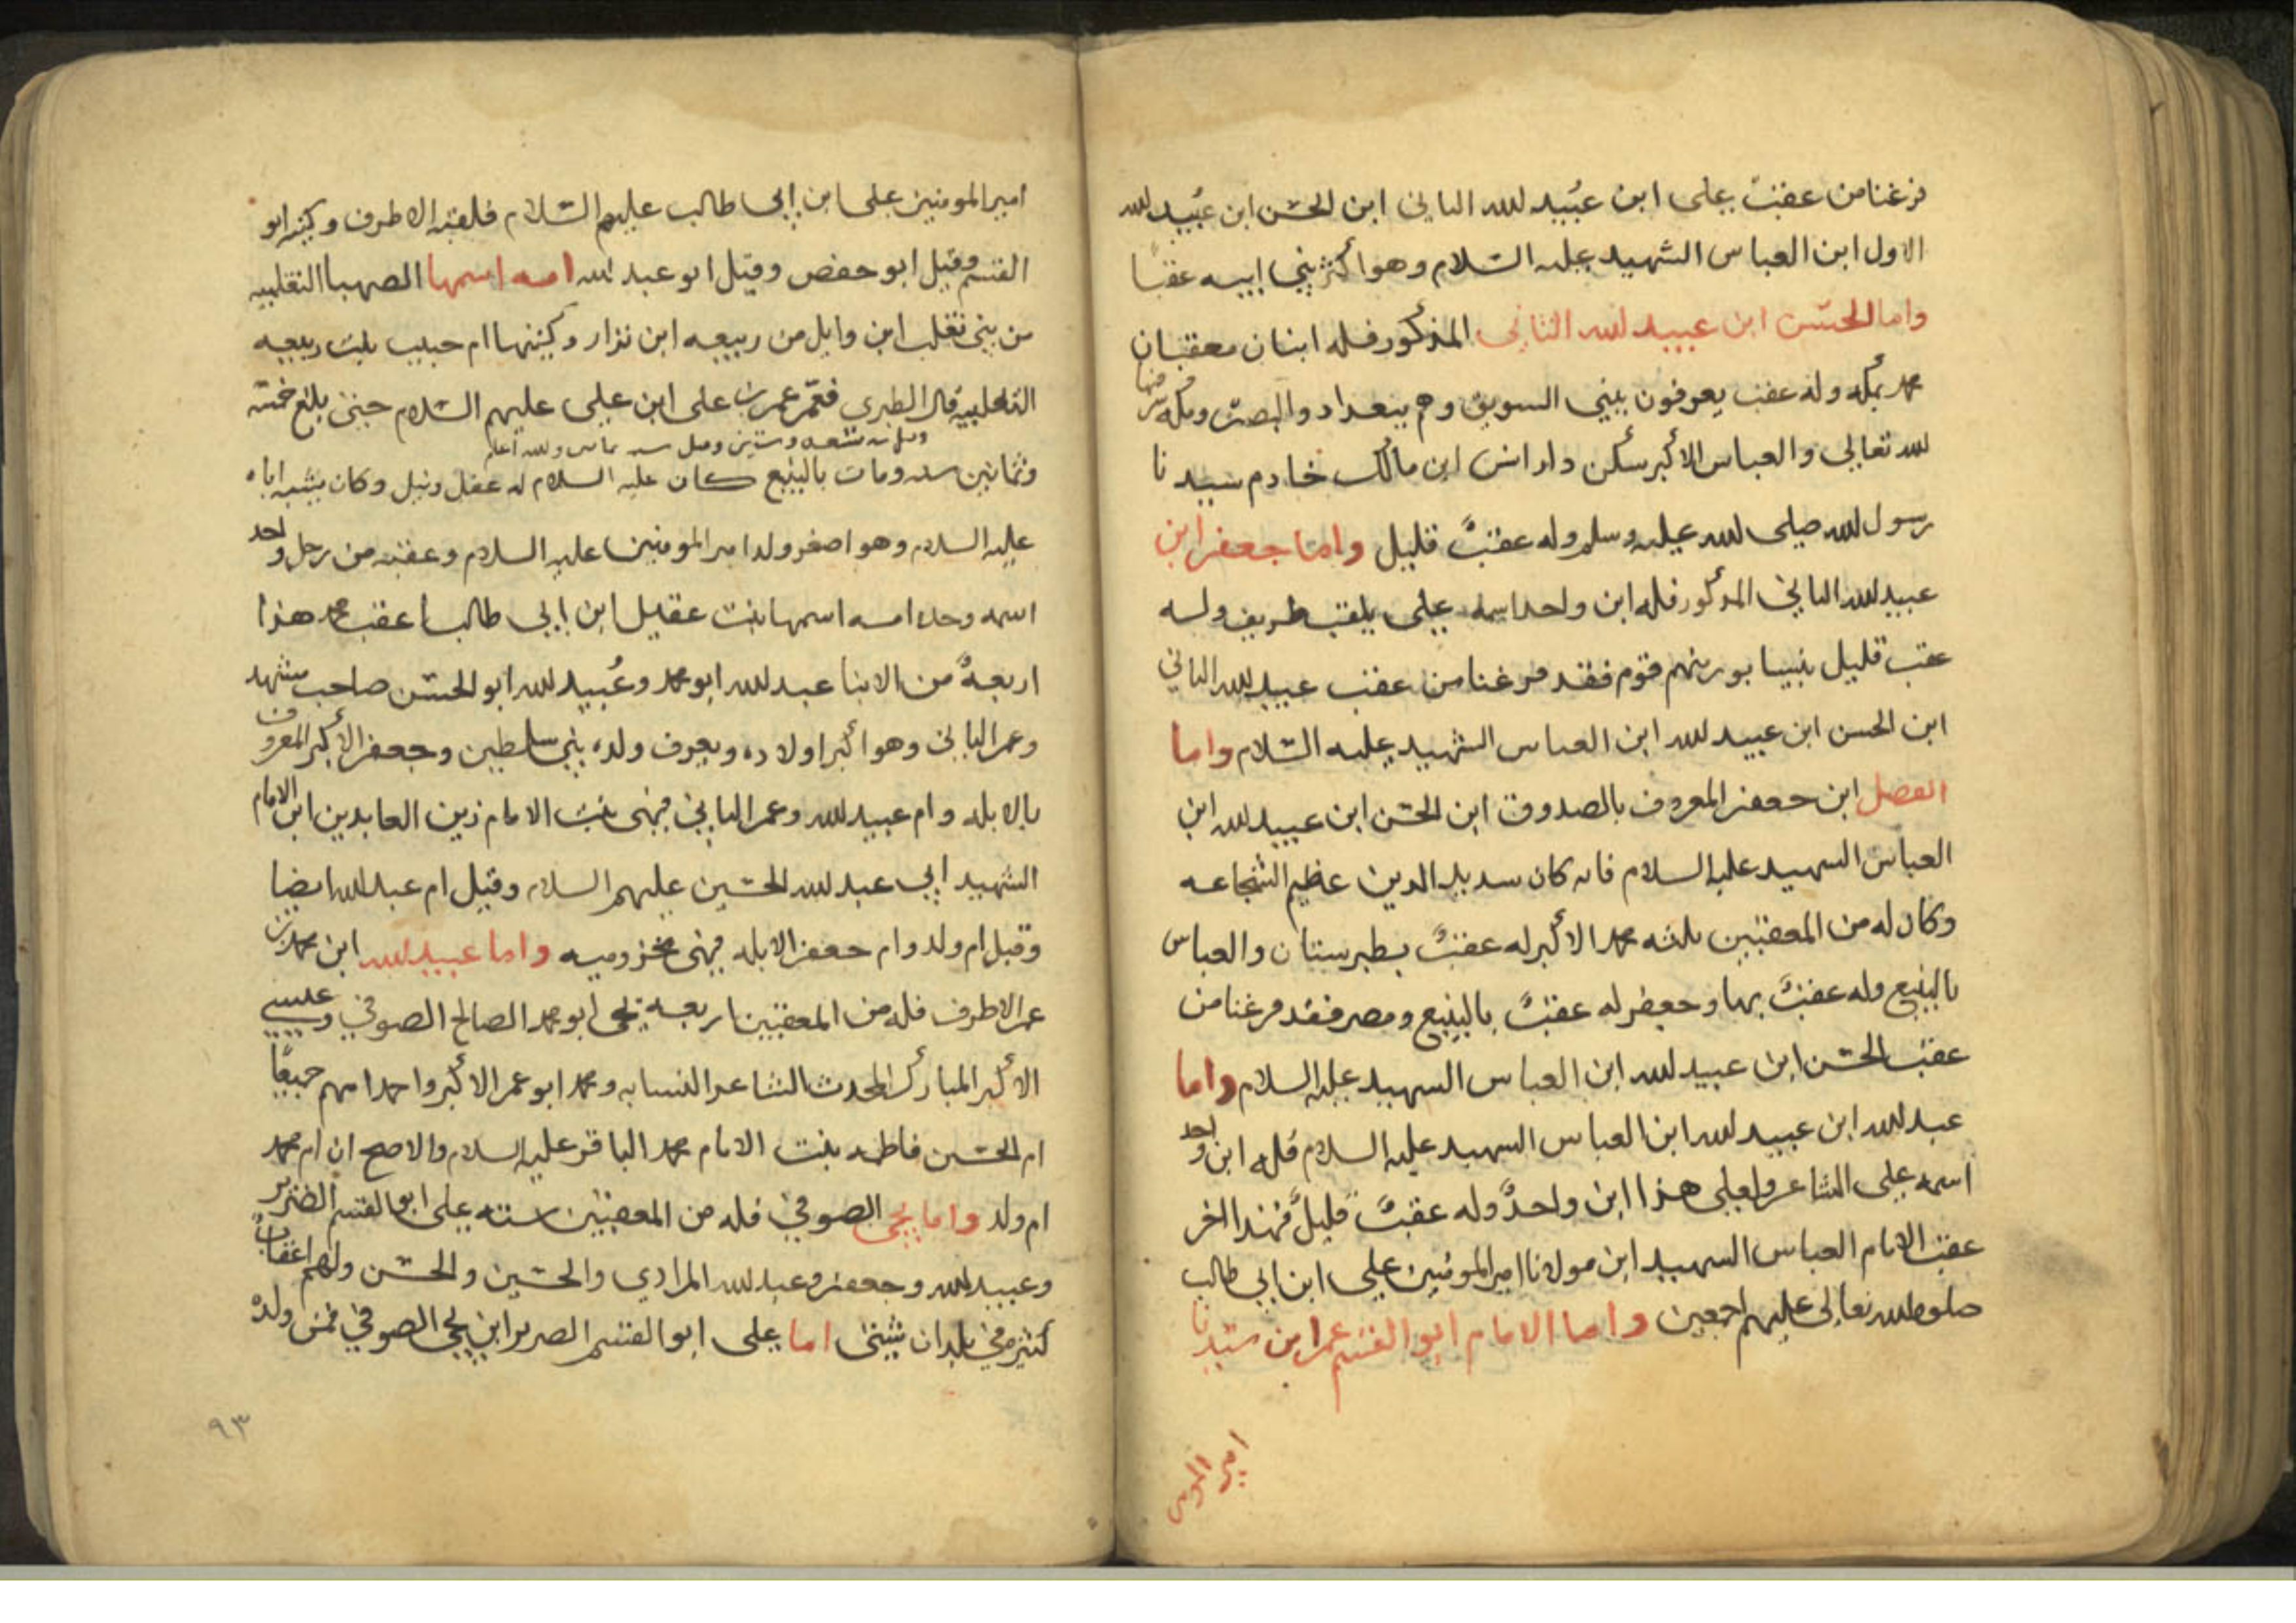 فرغنا من عقب علي ابن عبيد لله الثاني ابن الحسن ابن عبيد لله
الاول ابن العباس الشهيد عليه السلام وهو اكثر بني ابيه عقبا
واما الحسن ابن عبيد لله الثاني المذكور فله ابنان معقبان
محمد بمكه وله عقب يعرفون ببني السويق وهم ببغداد والبصرة ومكه
لله تعالى والعباس الاكبر سكن دار انس ابن مالك خادم سيدنا
رسول لله صلى لله عليه وسلم وله عقب قليل واما جعفر ابن
عبيد لله الثاني المذكور فله ابن واحد اسمه علي يلقب طريف وله
عقب قليل بنيسابور منهم قوم فقد فرغنا من عقب عبيد لله الثاني
ابن الحسن ابن عبيد لله ابن العباس الشهيد عليه السلام واما
الفضل ابن جعفر المعروف بالصدوق ابن الحسن ابن عبيد لله ابن
العباس الشهيد عليه السلام فانه كان سديد الدين عظيم الشجاعه
وكان له من المعقبين ثلثه محمد الاكبر له عقب بطبرستان والعباس
بالينبع وله عقب بها وجعفر له عقب بالينبع ومصر فقد فرغنا من
عقب الحسن ابن عبيد لله ابن العباس الشهيد عليه السلام واما
عبد لله ابن عبيد لله ابن العباس الشهيد عليه السلام فله ابن واحد
اسمه علي الشاعر ولعلي هذا ابن واحد وله عقب قليل فهذا اخر
عقب الامام العباس الشهيد ابن مولانا امير المومنين علي ابن ابي طالب
صلوات لله تعالى عليهم اجمعين واما الامام ابو القسم عمر ابن سيدنا
امير المومنين
امير المومنين علي ابن ابي طالب عليهم السلام فلقبه الاطرف وكنيته ابو
القسم وقيل ابو حفص وقيل ابو عبد لله امه اسمها الصهبا التغلبيه
من بني تغلب ابن وايل من ربيعه ابن نزار وكنيتها ام حبيب بنت ربيعه
التغلبيه قال الطبري فعمر عمر بن علي ابن علي عليهم السلام حتى بلغ خمسه
وثمانين سنه ومات بالينبع كان عليه السلام له عقل ونبل وكان يشبه اباه
عليه السلام وهو اصغر ولد امير المومنين عليه السلام وعقبه من رجل واحد
اسمه وحده امه اسمها بنت عقيل ابن ابي طالب اعقب محمد هذا
اربعة من الابنا عبد لله ابو محمد وعبيد لله ابو الحسن صاحب مشهد
وعمر الثاني وهو اكبر اولاده ويعرف ولده بني سلطين وجعفر الاكبر المعروف
بالابله وام عبيد لله وعمر الثاني فهي بنت الامام زين العابدين ابن الامام
الشهيد ابي عبد لله الحسين عليهم السلام وقيل ام عبد لله ايضا
وقيل ام ولد وام جعفر الابله فهي مخزوميه واما عبيد لله ابن محمد بن
عمر الاطرف فله من المعقبين اربعه يحى ابو محمد الصالح الصوفي وعيسى
الاكبر المبارك المحدث الشاعر النسابه ومحمد ابو عمر الاكبر واحمد امهم جميعا
ام الحسين فاطمه بنت الامام محمد الباقر عليه السلام والاصح ان ام محمد
ام ولد واما يحى الصوفي فله من المعقبين سته علي ابو القسم الضرير
وعبيد لله وجعفر وعبد لله المرادي والحسين والحسن ولهم اعقاب
كثير في بلدان شتى اما علي ابو القسم الضرير ابن يحى الصوفي فمن ولده
٩٣